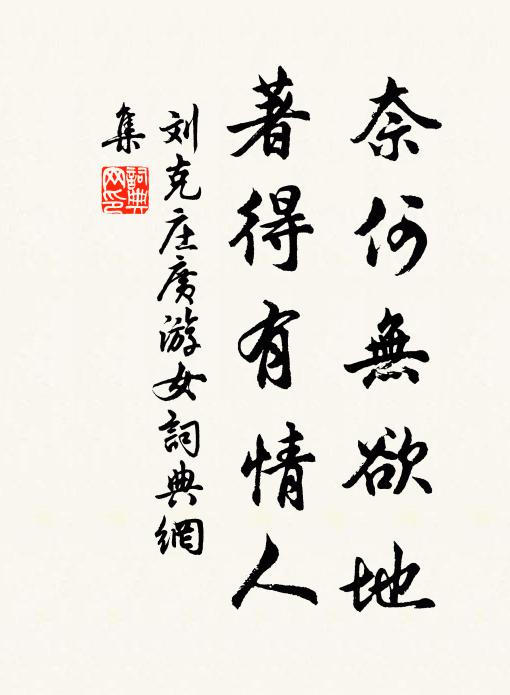 奈何無欲地
著得有情人
刘克庄廣游女詞典網
集
詞典
网印